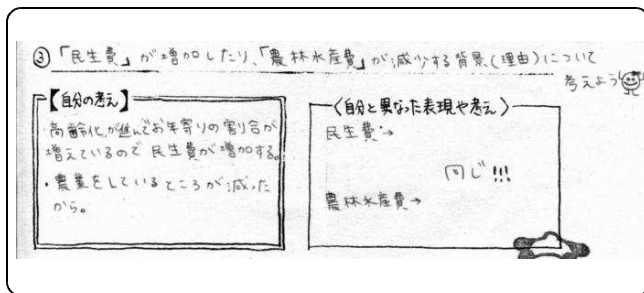 ③「民生費」が増加したり、「農林水産費」が減少する背景(理由)について
考えよう
【自分の考え】
・高齢化が進んでお年寄りの割合が
増えているので民生費が増加する。
・農業をしているところが減った
から。
〈自分と異なった表現や考え〉
民生費→
同じ!!!
農林水産費→